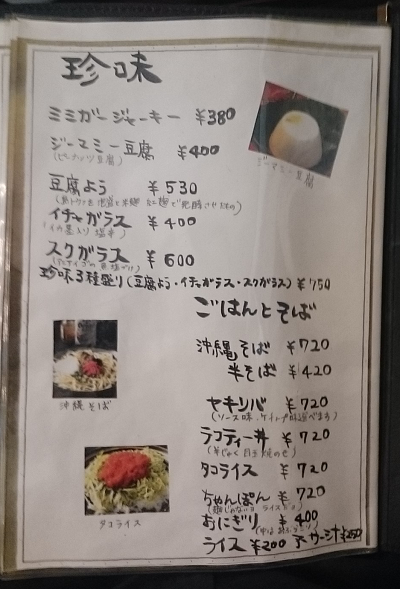 珍味
ミミガージャーキー ¥380
ジーマミー豆腐 ¥400
(ピーナッツ豆腐)
ジーマミー豆腐
豆腐よう ¥530
イチャガラス ¥400
(イカの墨入り塩辛)
スクガラス ¥600
珍味3種盛り(豆腐よう・イチャガラス・スクガラス) ¥750
ごはんとそば
沖縄そば ¥720
半そば ¥420
沖縄そば
ヤキソバ ¥720
(ソース味・ケチャップ味選べます)
ラフティー丼 ¥720
(半じゅく目玉焼のせ)
タコライス ¥720
タコライス
ちゃんぽん ¥720
おにぎり ¥400
ライス ¥200 アーサー汁¥250